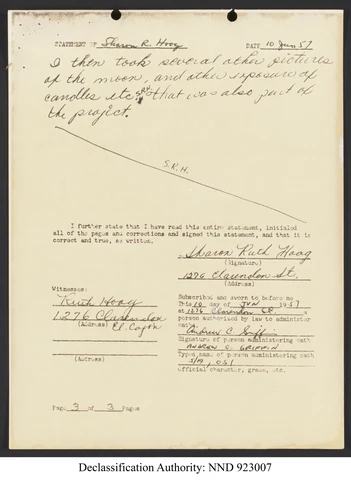 STATEMENT OF Sharon R. Hoag DATE 10 Jun 57
I then took several other pictures
of the moon, and other exposure of
candles etc SRH that was also part of
the project.
S.R.H.
I further state that I have read this entire statement, initialed
all of the pages and corrections and signed this statement, and that it is
correct and true, as written.
Sharon Ruth Hoag
(Signature)
1276 Clarendon St.
(Address)
Witnesses:
Ruth Hoag
1276 Clarendon
(Address) El Cajon
(Address)
Subscribed and sworn to before me
This 10 day of JUN 1957
at 1276 Clarendon St. a
person authorized by law to administer
oath
Andrew C. Griffin
Signature of person administering oath
ANDREW C. GRIFFIN
Typed name of person administering oath
S/A, OSI
Official character, grade, etc.
Page 3 of 3 Pages
Declassification Authority: NND 923007